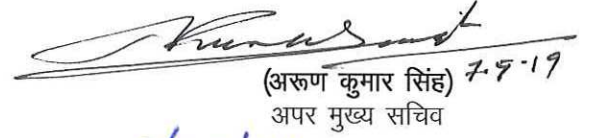 (अरूण कुमार सिंह) 7-9-19
अपर मुख्य सचिव